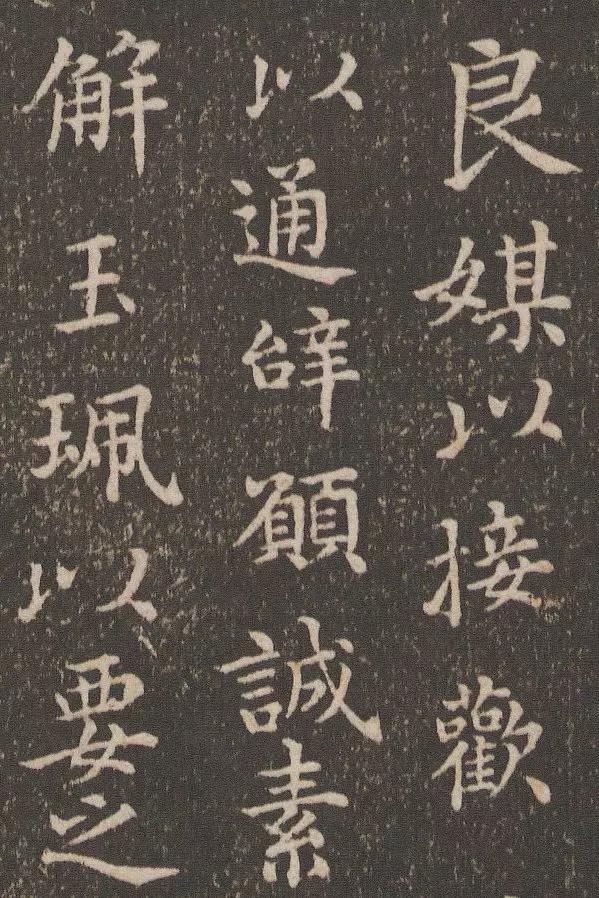 良媒以接歡
以通辝願誠素
解玉珮以要之